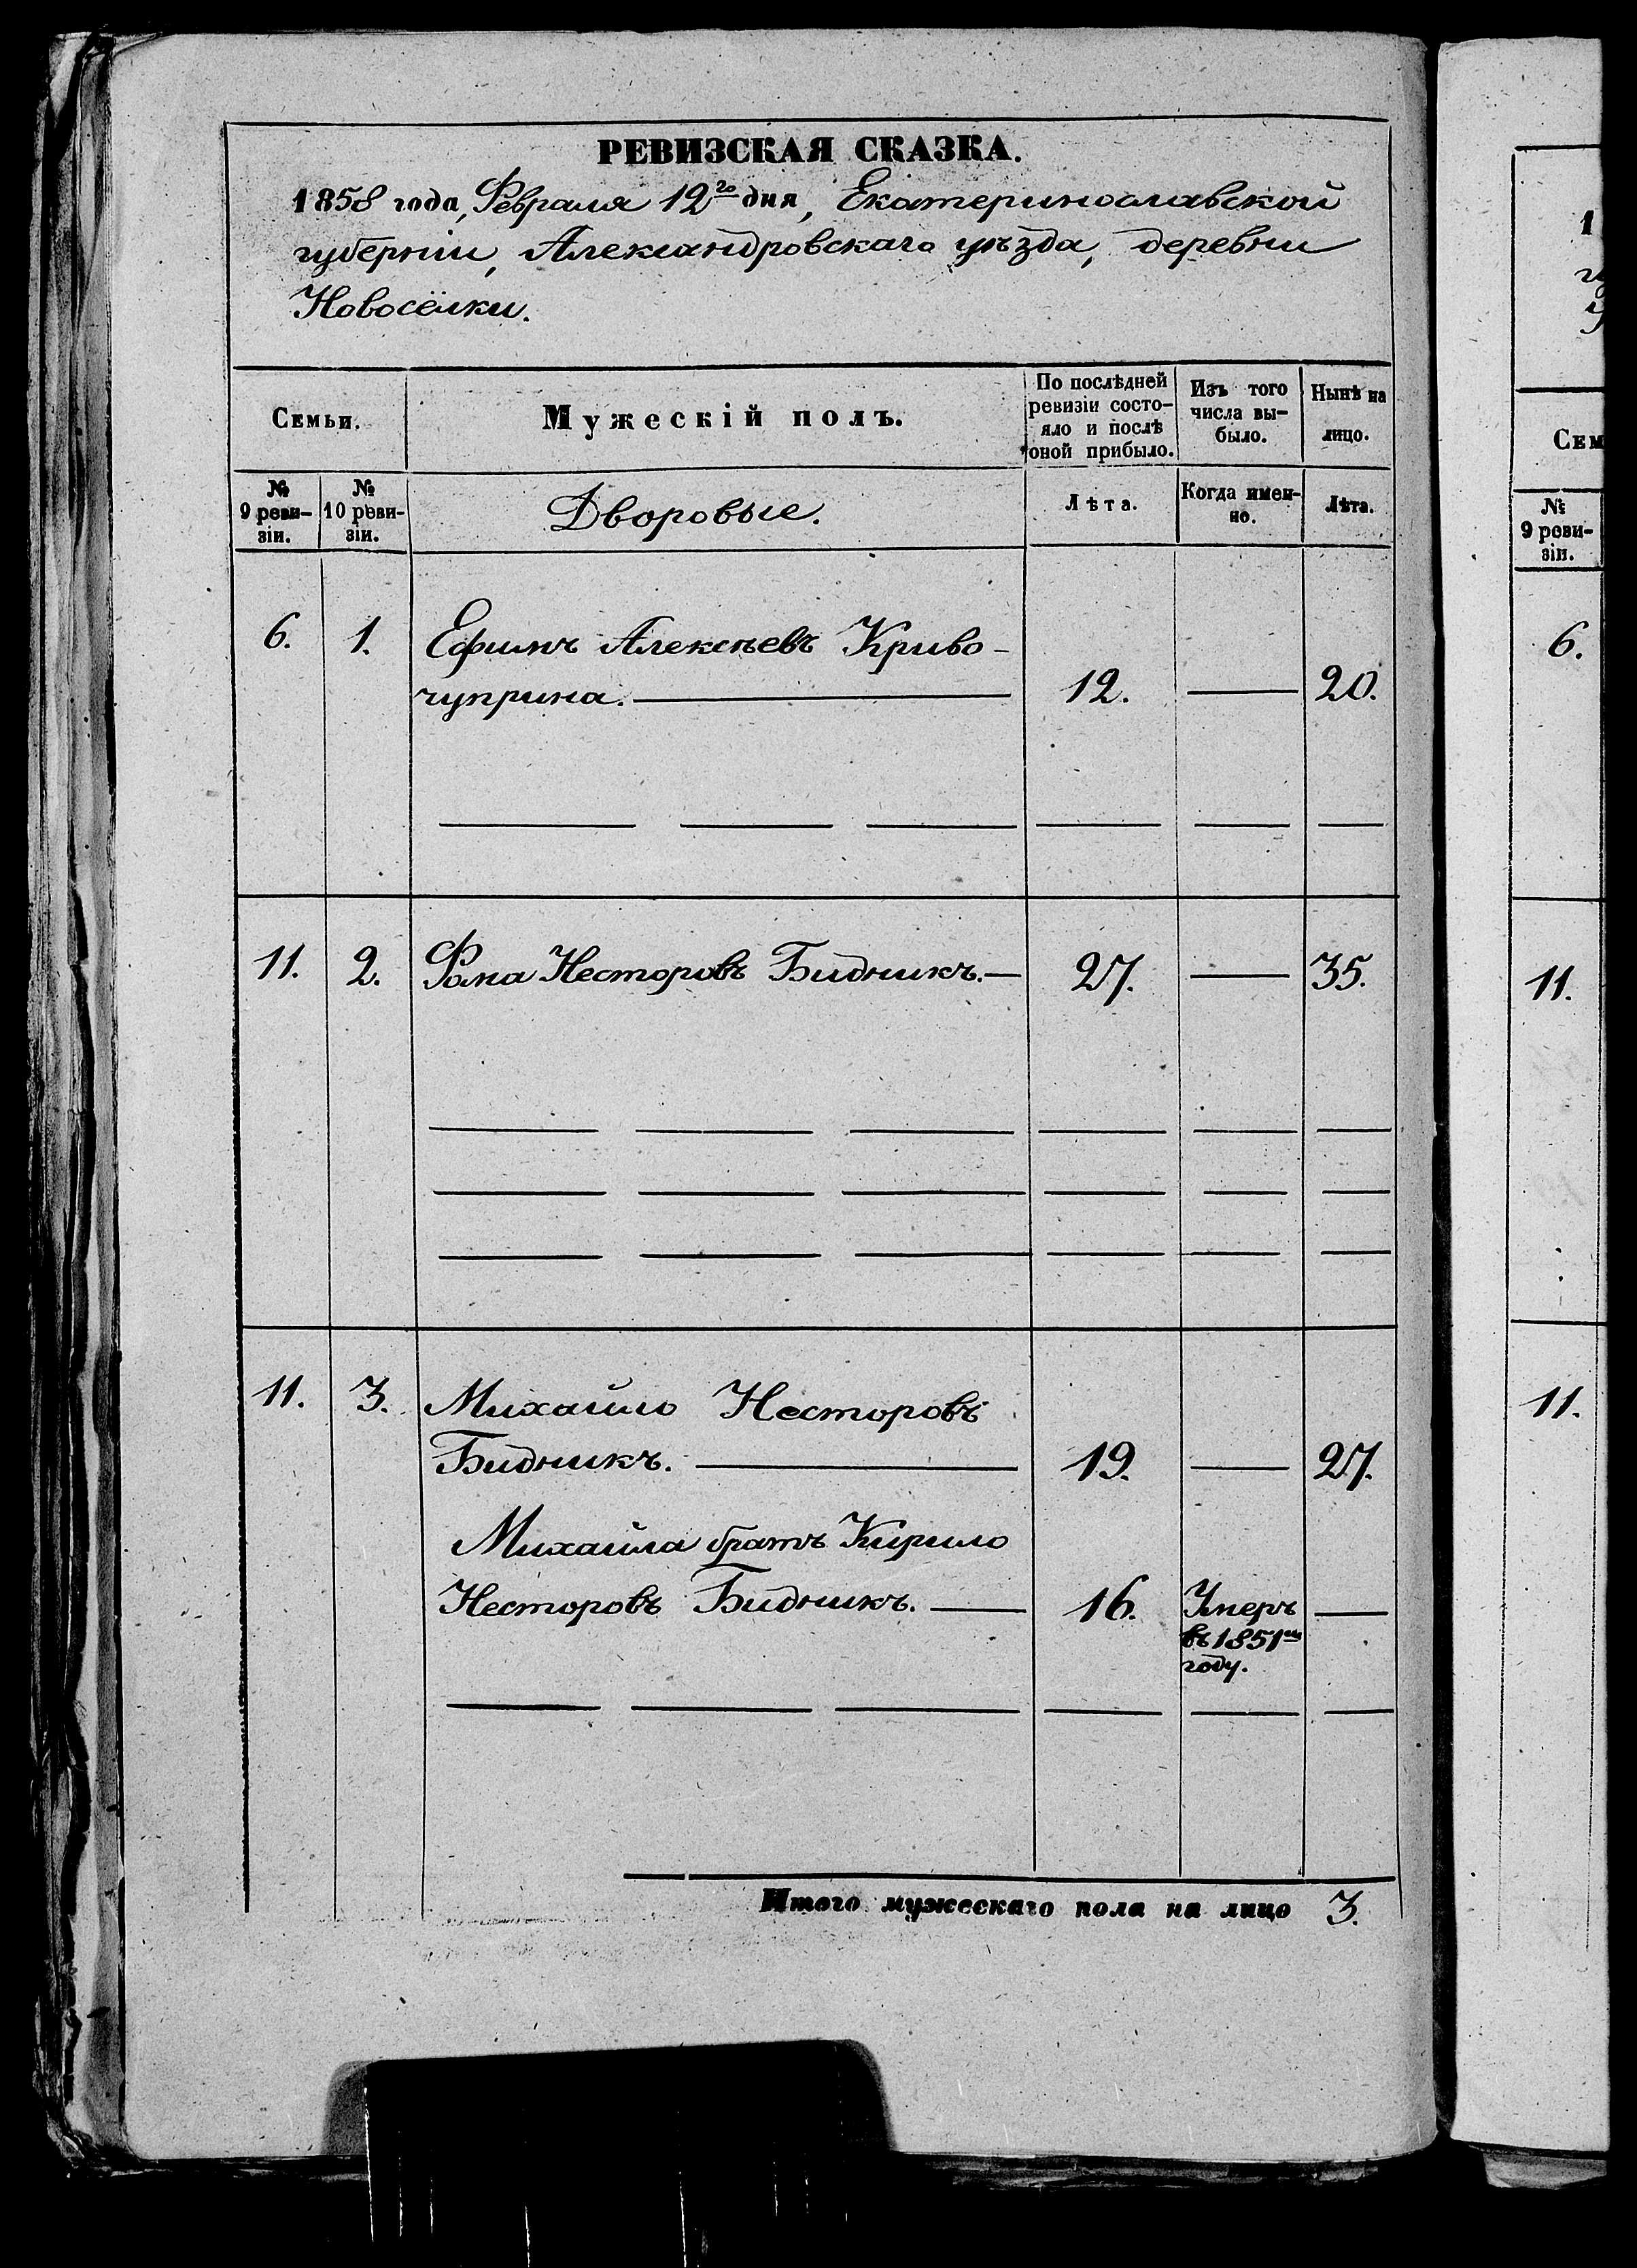 РЕВИЗСКАЯ СКАЗКА.
1858 года, Февраля 12го дня, Екатеринославской
губерніи, Александровскаго уѣзда, деревни
Новосёлки.
Семьи.
Мужескій полъ.
По послѣдней ревизіи состо-
яло и послѣ
оной прибыло.
Изъ того
числа вы-
было.
Нынѣ на
лицо.
№
9 реви-
зіи.
№
10 реви-
зіи.
Дворовые.
Лѣта.
Когда имен-
но.
Лѣта.
6. 1. Ефимъ Алексѣевъ Криво-
чуприна. — 12. — 20.
11. 2. Фома Несторовъ Бидникъ. — 27. — 35.
11. 3. Михайло Несторовъ
Бидникъ. — 19. — 27.
Михайла братъ Кирило
Несторовъ Бидникъ. — 16. Умеръ —
въ 1851мъ
году.
Итого мужескаго пола на лицо 3.
1
Сем
№
9 реви-
зіи.
6.
11.
11.